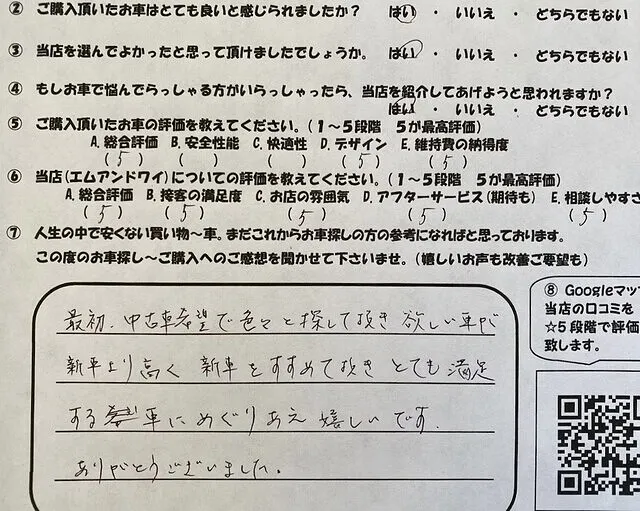 ② ご購入頂いたお車はとても良いと感じられましたか？　はい　・　いいえ　・　どちらでもない
③ 当店を選んでよかったと思って頂けましたでしょうか。　はい　・　いいえ　・　どちらでもない
④ もしお車で悩んでらっしゃる方がいらっしゃったら、当店を紹介してあげようと思われますか？
はい　・　いいえ　・　どちらでもない
⑤ ご購入頂いたお車の評価を教えてください。（１～５段階　５が最高評価）
A. 総合評価　B. 安全性能　C. 快適性　D. デザイン　E. 維持費の納得度
（ 5 ）　（ 5 ）　（ 5 ）　（ 5 ）　（ 5 ）
⑥ 当店（エムアンドワイ）についての評価を教えてください。（１～５段階　５が最高評価）
A. 総合評価　B. 接客の満足度　C. お店の雰囲気　D. アフターサービス（期待も）　E. 相談しやすさ
（ 5 ）　（ 5 ）　（ 5 ）　（ 5 ）　（ 5 ）
⑦ 人生の中で安くない買い物～車。まだこれからお車探しの方の参考になればと思っております。
この度のお車探し～ご購入へのご感想を聞かせて下さいませ。（嬉しいお声も改善ご要望も）
最初、中古車希望で色々と探して頂き 欲しい車が
新車より高く 新車をすすめて頂き とても満足
する車にめぐりあえ 嬉しいです。
ありがとうございました。
⑧ Googleマッ
当店の口コミを
☆５段階で評価
致します。